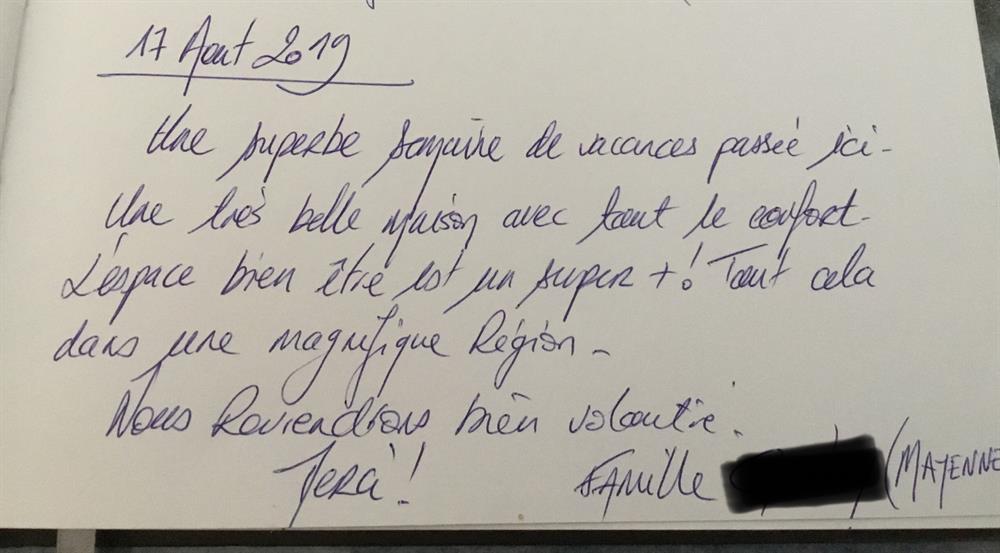 17 Aout 2019
Une superbe semaine de vacances passée ici-
Une très belle maison avec tout le confort-
L'espace bien être est un super +! Tout cela
dans une magnifique Région-
Nous Reviendrons bien volontié.
Merci!
FAmille (MAYENNE